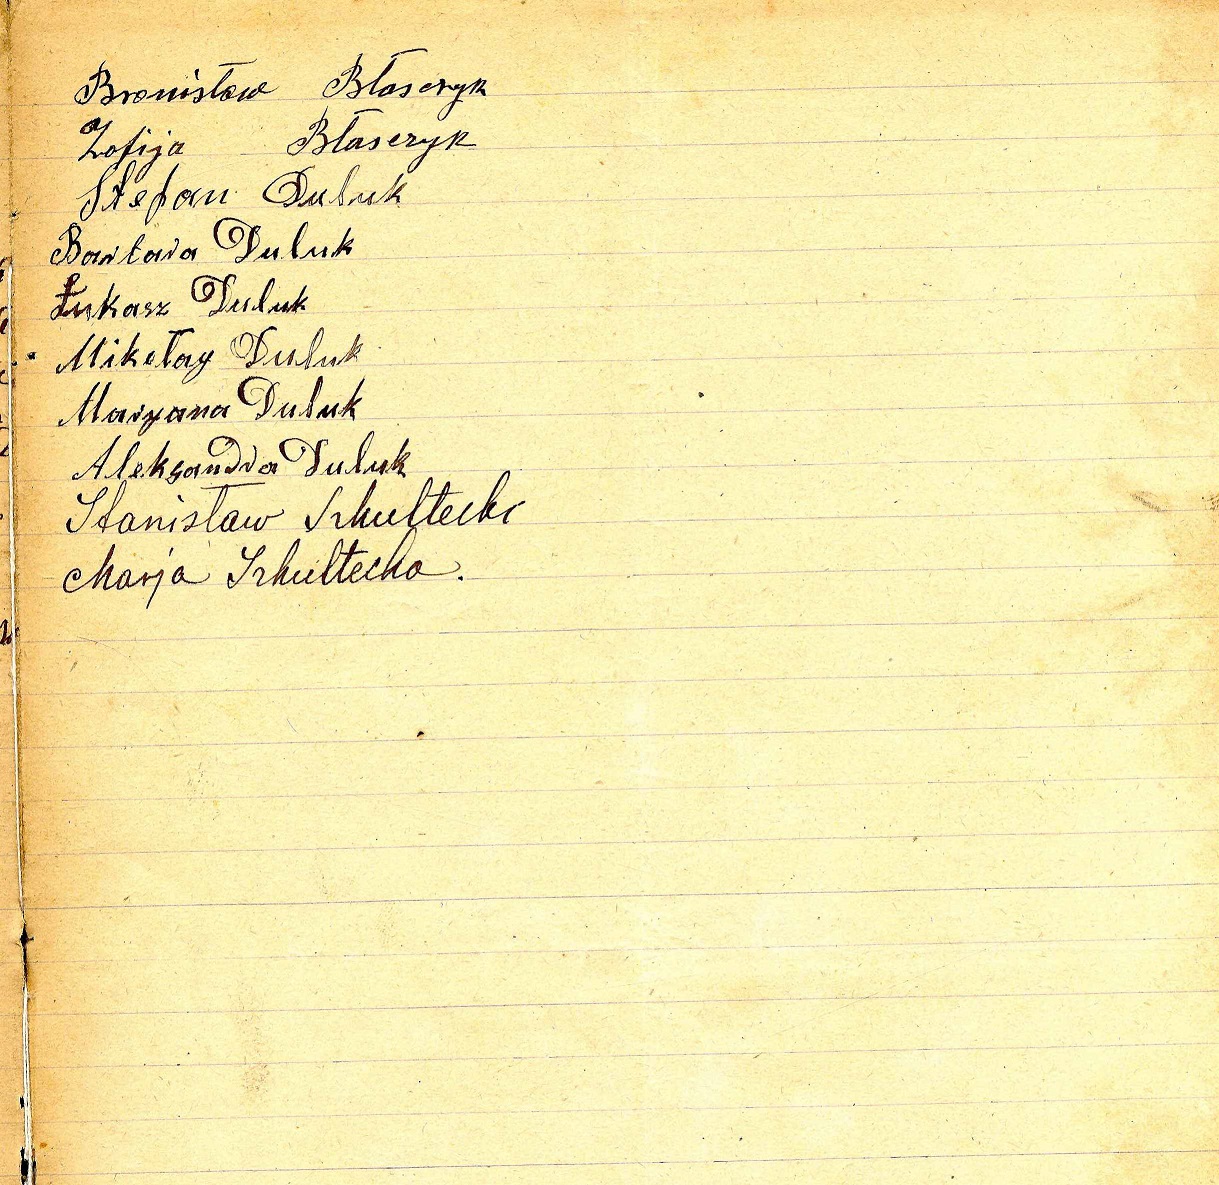 Bronisław Błaszczyk
Zofija Błaszczyk
Stefan Duluk
Barbara Duluk
Łukasz Duluk
Mikołay Duluk
Maryana Duluk
Aleksandra Duluk
Stanisław
Marja